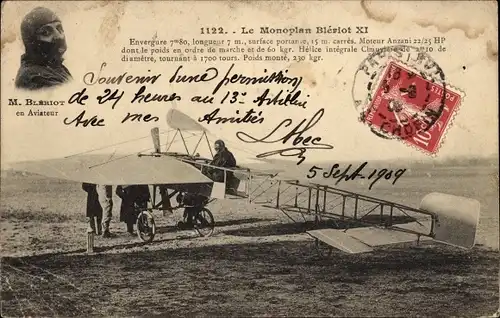 1122. - Le Monoplan Blériot XI
Envergure 7m80, longueur 7 m., surface portante, 15 m. carrés. Moteur Anzani 22/25 HP
dont le poids en ordre de marche et de 60 kgr. Hélice intégrale Chauvière de
diamètre, tournant à 1700 tours. Poids monté, 230 kgr.
M. BLÉRIOT
en Aviateur
Souvenir d'une permission
de 24 heures au 13e Artillie
Avec mes Amitiés
5 Sept. 1909
10